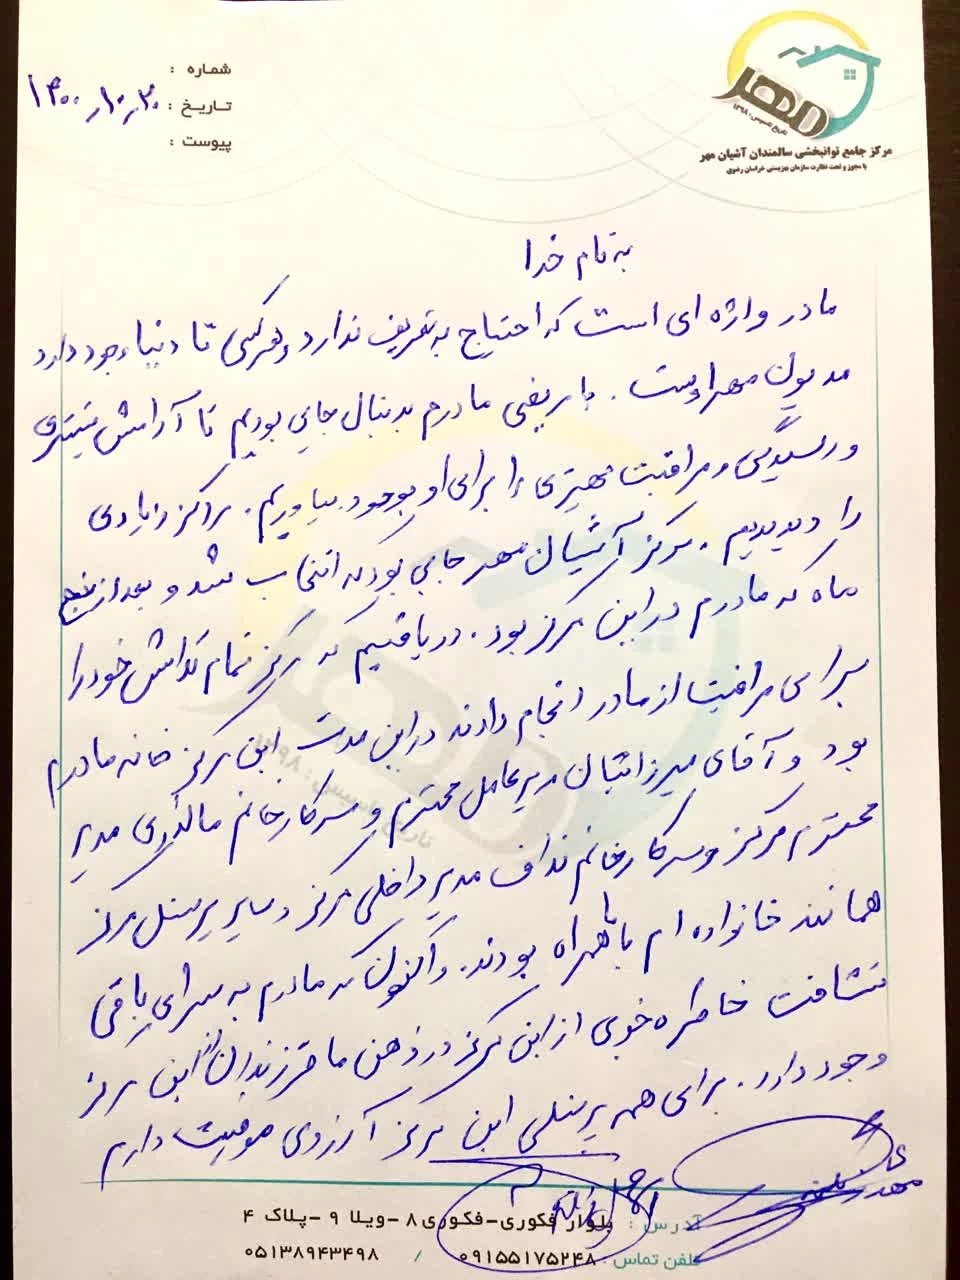 مهر
تاریخ تاسیس: ۱۳۹۸
مرکز جامع توانبخشی سالمندان آشیان مهر
با مجوز و تحت نظارت سازمان بهزیستی خراسان رضوی
شماره :
تاریخ : ۱۴۰۰٫۱۰٫۲۰
پیوست :
به نام خدا
مادر واژه ای است که احتیاج به تعریف ندارد و هرکسی تا دنیا وجود دارد
مدیون مهر اوست . با مریضی مادرم بدنبال جایی بودیم تا آرامش بیشتری
و رسیدگی و مراقبت بهتری را برای او بوجود بیاوریم . مراکز زیادی
را دیدیم . مرکز آشیان مهر جایی بود که انتخاب شد و بعد از پنج
ماه که مادرم در این مرکز بود . دریافتیم که مرکز تمام تلاش خود را
برای مراقبت از مادر انجام دادند در این مدت این مرکز خانه مادرم
بود و آقای میرزائیان مدیرعامل محترم و سرکار خانم مدیر
محترم مرکز و سرکار خانم نداف مدیر داخلی مرکز و سایر پرسنل مرکز
همانند خانواده ام با ما همراه بودند . و اکنون که مادرم به سرای باقی
شتافت خاطره خوبی از این مرکز در ذهن ما فرزندان از این مرکز
وجود دارد . برای همه پرسنل این مرکز آرزوی موفقیت دارم
آدرس : بلوار فکوری-فکوری ۸ -ویلا ۹ -پلاک ۴
تلفن تماس : ۰۹۱۵۵۱۷۵۲۴۸ / ۰۵۱۳۸۹۴۳۴۹۸